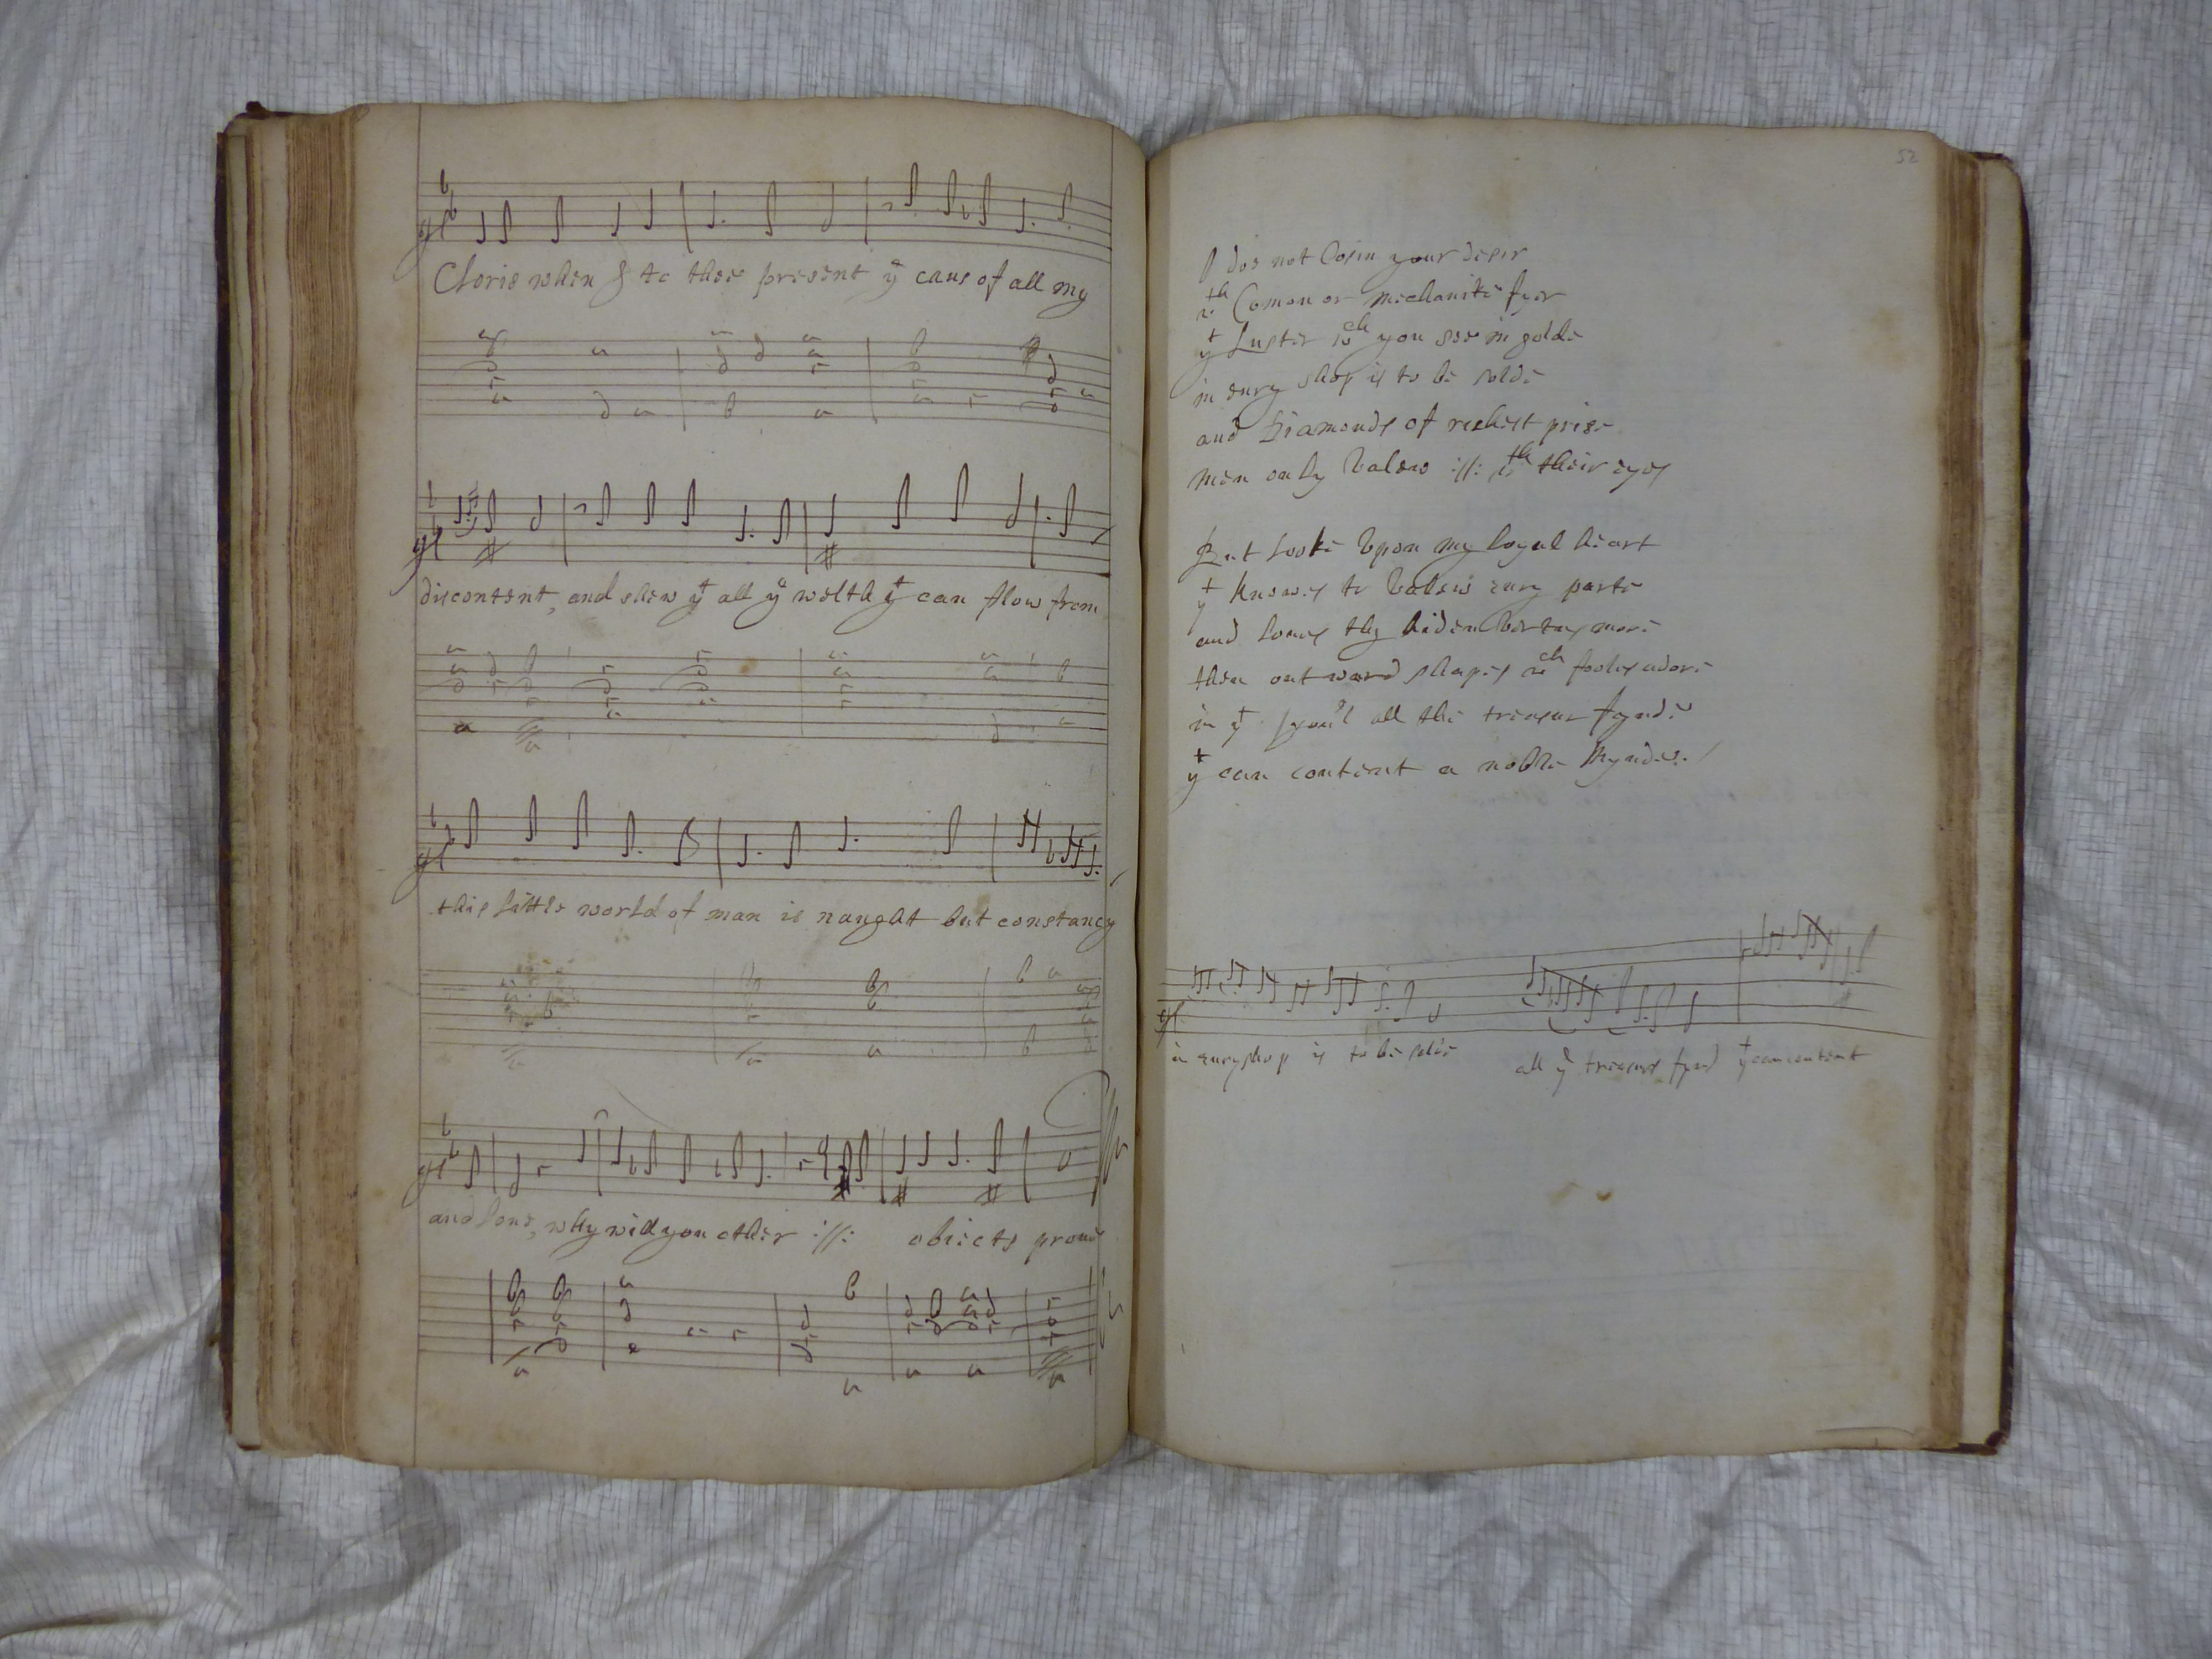 Cloris when I to thee present yᵉ caus of all my
discontent, and shew yᵗ all yᵉ welth yᵗ can flow from
this little world of man is naught but constancy
and loue, why will you other :||: obiects proue
52
O doe not Cosin your desir
wᵗʰ Comon or mechanike fyer
yᵗ Luster wᶜʰ you see in golde
in eury shop is to be solde
and Diamonds of richest prise
men only valew :||: wᵗʰ their eyes
But looke vpon my loyal heart
yᵗ knowes to valew eury parte
and loues thy hiden vertuy more
then outward shapes wᶜʰ fooles adore
in yᵗ you'l all the treasur fynde
yᵗ can content a noble Mynde.
in euryshop is to be solde all yᵉ treasure fynd yᵗ can content